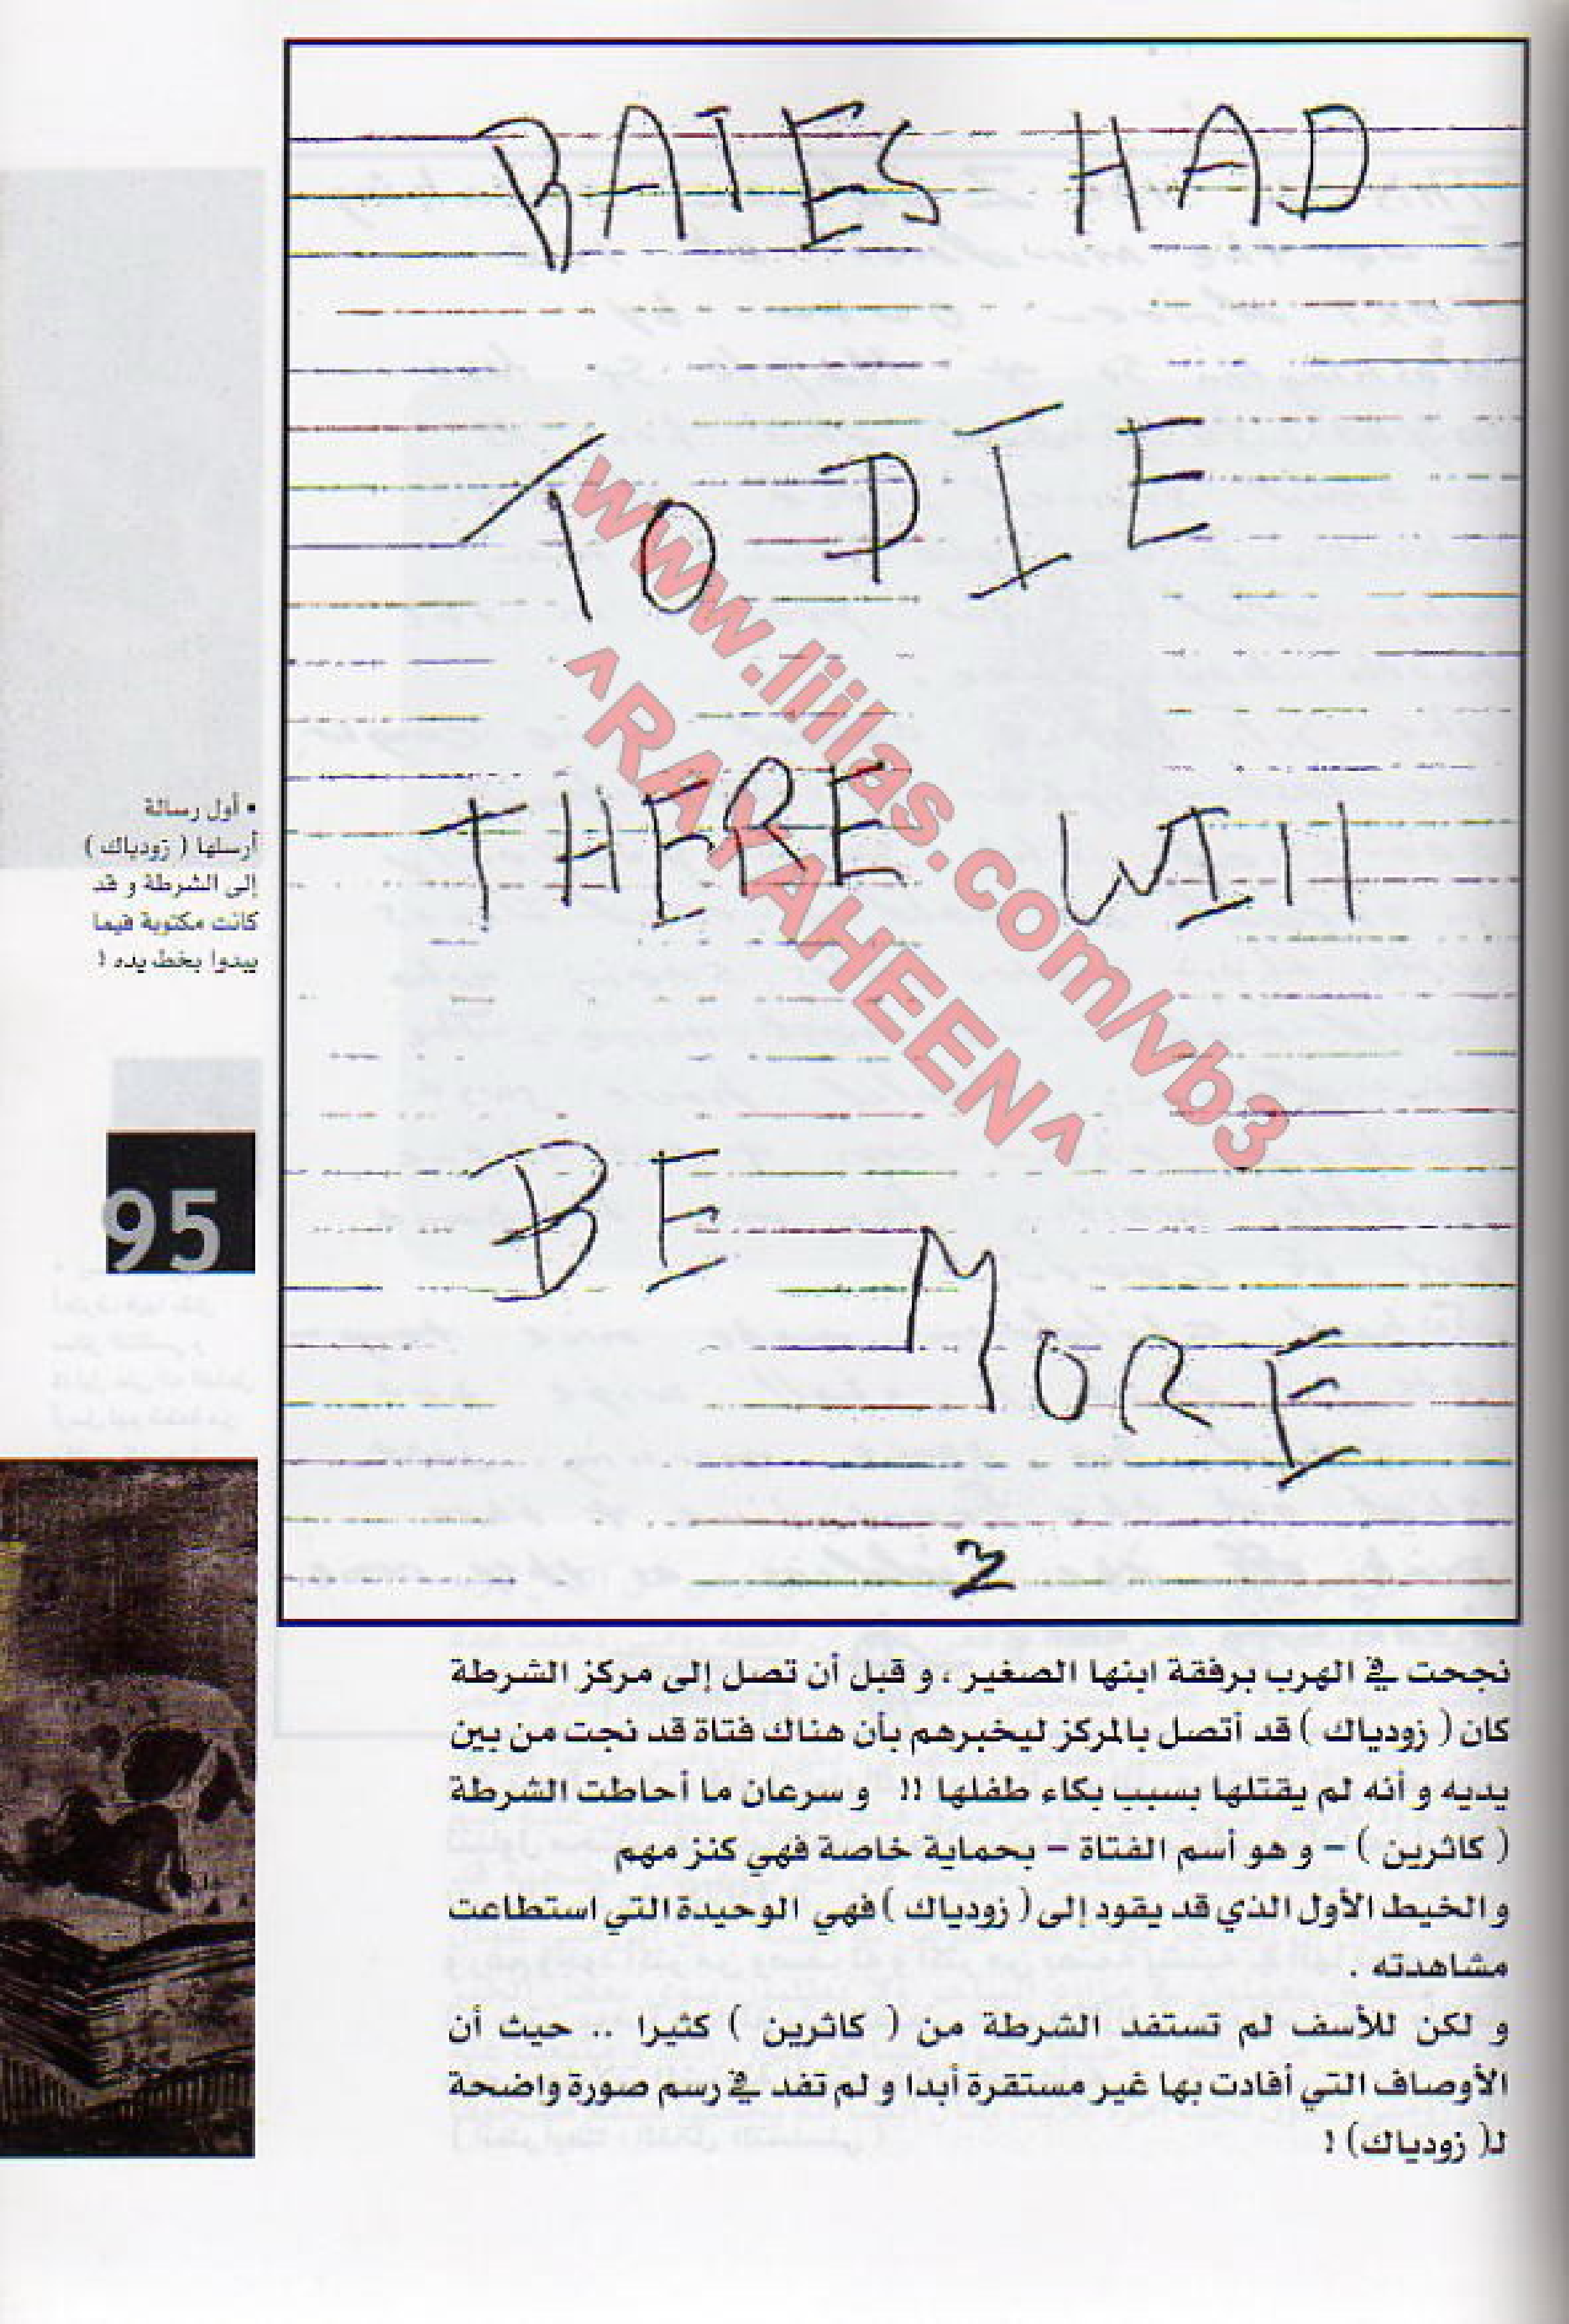 BATES HAD
TO DIE
THERE WILL
BE MORE
www.liilas.com/vb3
^RAYAHEEN^
• أول رسالة
أرسلها ( زودياك )
إلى الشرطة و قد
كانت مكتوبة فيما
يبدوا بخط يده !
95
نجحت في الهرب برفقة ابنها الصغير ، و قبل أن تصل إلى مركز الشرطة
كان ( زودياك ) قد أتصل بالمركز ليخبرهم بأن هناك فتاة قد نجت من بين
يديه و أنه لم يقتلها بسبب بكاء طفلها !! و سرعان ما أحاطت الشرطة
( كاثرين ) – و هو أسم الفتاة – بحماية خاصة فهي كنز مهم
و الخيط الأول الذي قد يقود إلى ( زودياك ) فهي الوحيدة التي استطاعت
مشاهدته .
و لكن للأسف لم تستفد الشرطة من ( كاثرين ) كثيرا .. حيث أن
الأوصاف التي أفادت بها غير مستقرة أبدا و لم تفد في رسم صورة واضحة
لـ( زودياك) !